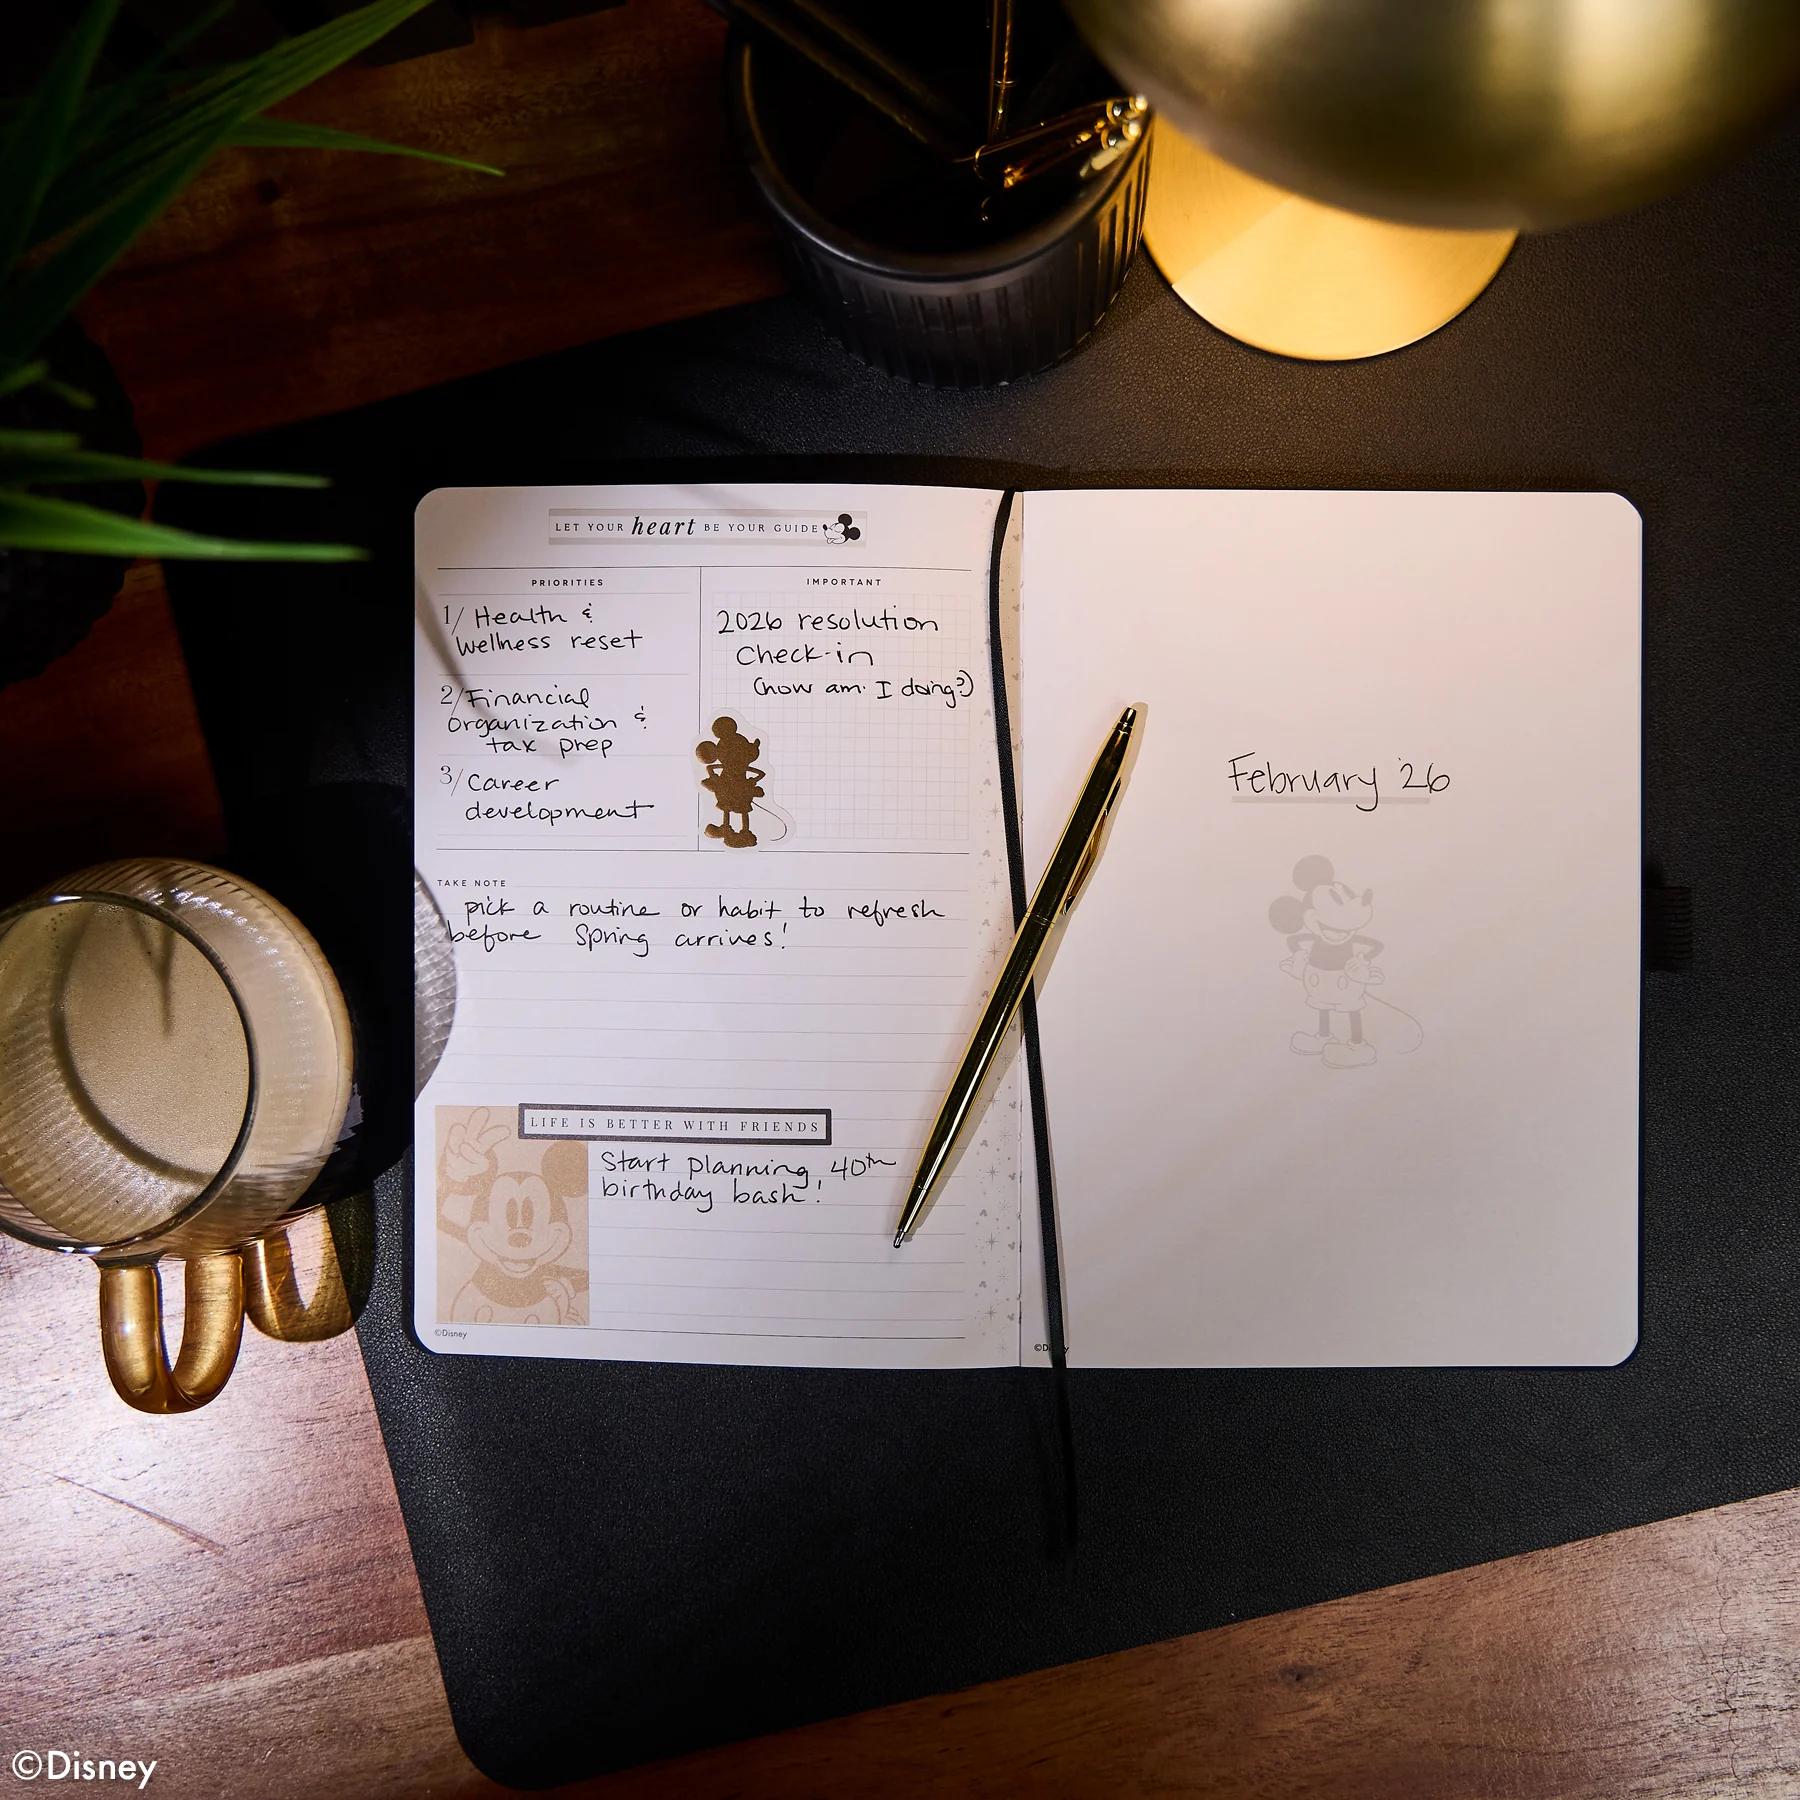 LET YOUR heart BE YOUR GUIDE
PRIORITIES
1/ Health &
Wellness reset
2/ Financial
Organization &
tax prep
3/ Career
development
IMPORTANT
2026 resolution
Check-in
(how am I doing?)
TAKE NOTE
pick a routine or habit to refresh
before Spring arrives!
LIFE IS BETTER WITH FRIENDS
Start planning 40th
birthday bash!
©Disney
February '26
©Disney